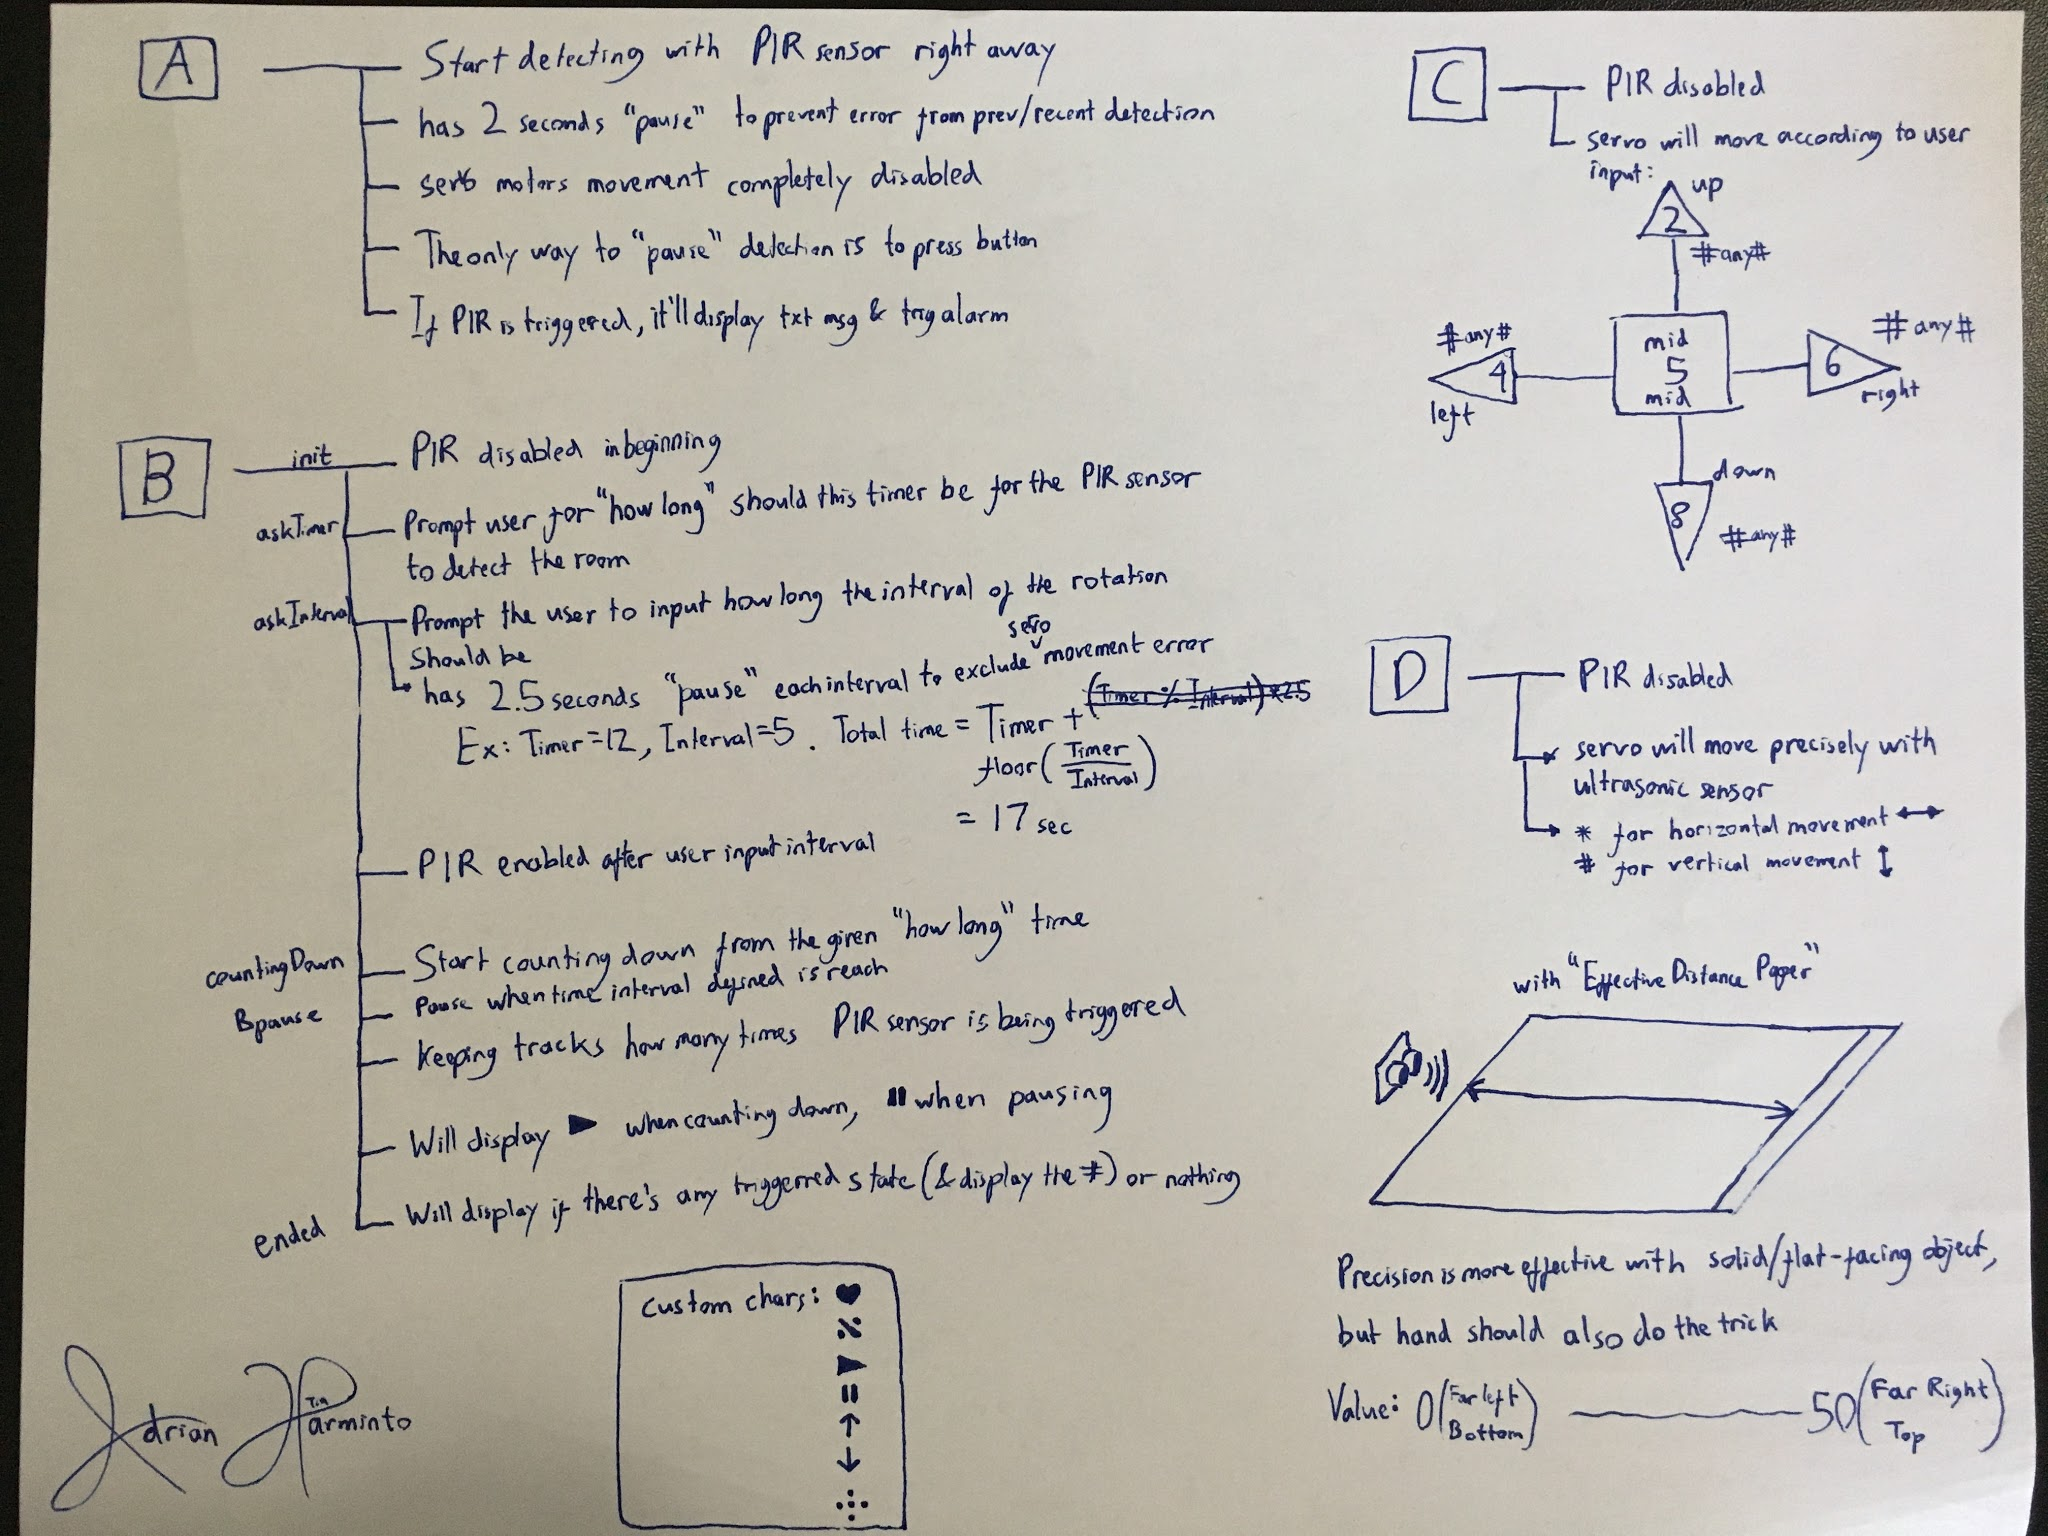 A
Start detecting with PIR sensor right away
has 2 seconds "pause" to prevent error from prev/recent detection
servo motors movement completely disabled
The only way to "pause" detection is to press button
If PIR is triggered, it'll display txt msg & trig alarm
B
init
PIR disabled in beginning
askTimer
Prompt user for "how long" should this timer be for the PIR sensor
to detect the room
askInterval
Prompt the user to input how long the interval of the rotation
should be
servo
has 2.5 seconds "pause" each interval to exclude movement error
(Timer % Interval)*2.5
Ex: Timer=12, Interval=5. Total time = Timer +
floor(Timer
Interval)
= 17 sec
PIR enabled after user input interval
countingDown
Start counting down from the given "how long" time
Bpause
Pause when time interval defined is reach
Keeping tracks how many times PIR sensor is being triggered
Will display ▶ when counting down, ⏸ when pausing
ended
Will display if there's any triggerred state (& display the #) or nothing
custom chars: ♥
%
=
↑
↓
Adrian
Tin
Harminto
C
PIR disabled
servo will move according to user
input:
up
2
#any#
#any#
4
left
mid
5
mid
#any#
6
right
down
8
#any#
D
PIR disabled
servo will move precisely with
ultrasonic sensor
* for horizontal movement ↔
# for vertical movement ↕
with "Effective Distance Paper"
Precision is more effective with solid/flat-facing object,
but hand should also do the trick
Value: 0 (Far left
Bottom)
50 (Far Right
Top)